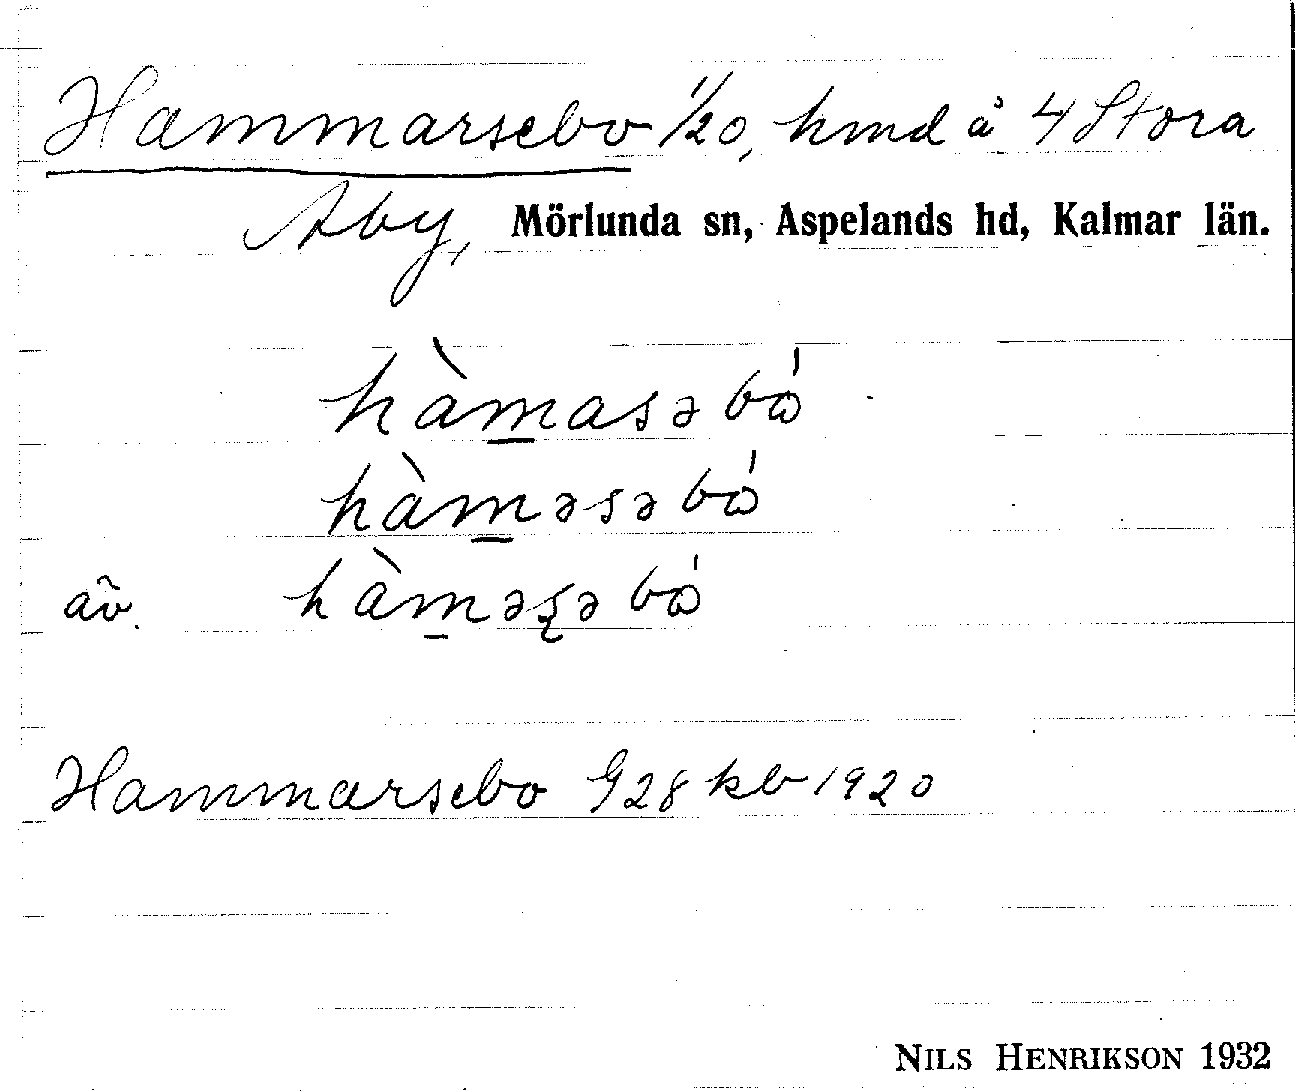 Hammarsebo 1/20, hmd å 4 Stora
Åby, Mörlunda sn, Aspelands hd, Kalmar län.
hàmasəbó
hàməsəbó
äv. hàməʂəbó
Hammarsebo G28 kb 1920
NILS HENRIKSON 1932